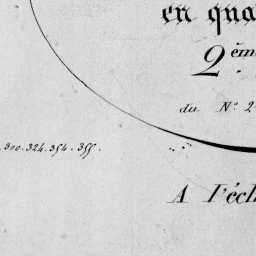 en qua
2ème
du N° 2
. 300. 324. 354. 355.
A l'écl